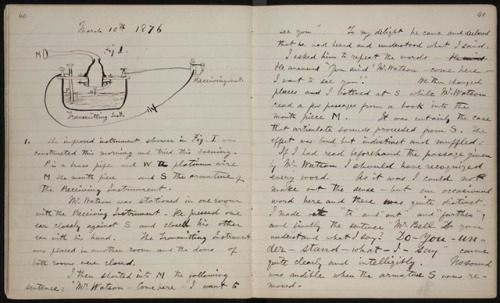 40
March 10th 1876
Fig. 1.
M
Receiving Inst.
Transmitting Inst.
1. The improved instrument shown in Fig. I was
constructed this morning and tried this evening.
P is a brass pipe and W the platinum wire
M the mouth piece and S the armature of
the Receiving Instrument.
Mr. Watson was stationed in one room
with the Receiving Instrument. He pressed one
ear closely against S and closed his other
ear with his hand. The Transmitting Instrument
was placed in another room and the doors of
both rooms were closed.
I then shouted into M the following
sentence: "Mr. Watson - Come here - I want to
41
see you". To my delight he came and declared
that he had heard and understood what I said.
I asked him to repeat the words.
He answered "You said 'Mr. Watson - come here -
I want to see you'." We then changed
places and I listened at S while Mr. Watson
read a few passages from a book into the
mouth piece M. It was certainly the case
that articulate sounds proceeded from S. The
effect was loud but indistinct and muffled.
If I had read beforehand the passage given
by Mr. Watson I should have recognized
every word. As it was I could not
make out the sense - but an occasional
word here and there was quite distinct.
I made out "to" and "out" and "further";
and finally the sentence "Mr. Bell do you
understand what I say? Do - you - un -
der - stand - what - I - say" came
quite clearly and intelligibly. No sound
was audible when the armature S was re-
moved.